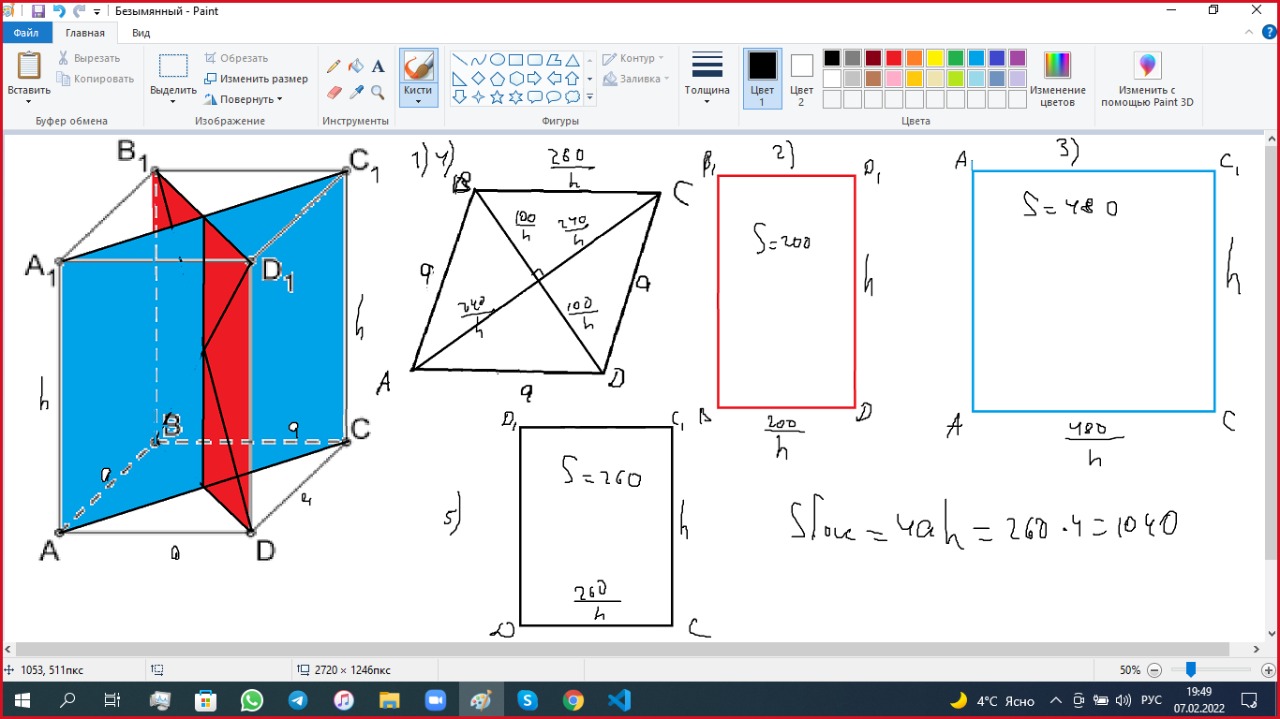 Безымянный - Paint
Файл Главная Вид
Вставить
Вырезать
Копировать
Буфер обмена
Выделить
Обрезать
Изменить размер
Повернуть
Изображение
Инструменты
Кисти
Контур
Заливка
Фигуры
Толщина
Цвет 1
Цвет 2
Изменение цветов
Цвета
Изменить с помощью Paint 3D
B1 C1
A1 D1
h
h
B C
a
a
a
A D
a
1) 4)
260/h
B C
100/h 240/h
a a
240/h 100/h
A D
a
2)
B1 D1
S=200
h
B D
200/h
3)
A1 C1
S=480
h
A C
480/h
5)
D1 C1
S=260
h
260/h
D C
Sбок = 4ah = 260 · 4 = 1040
1053, 511пкс
2720 × 1246пкс
50%
4°C Ясно
РУС
19:49
07.02.2022